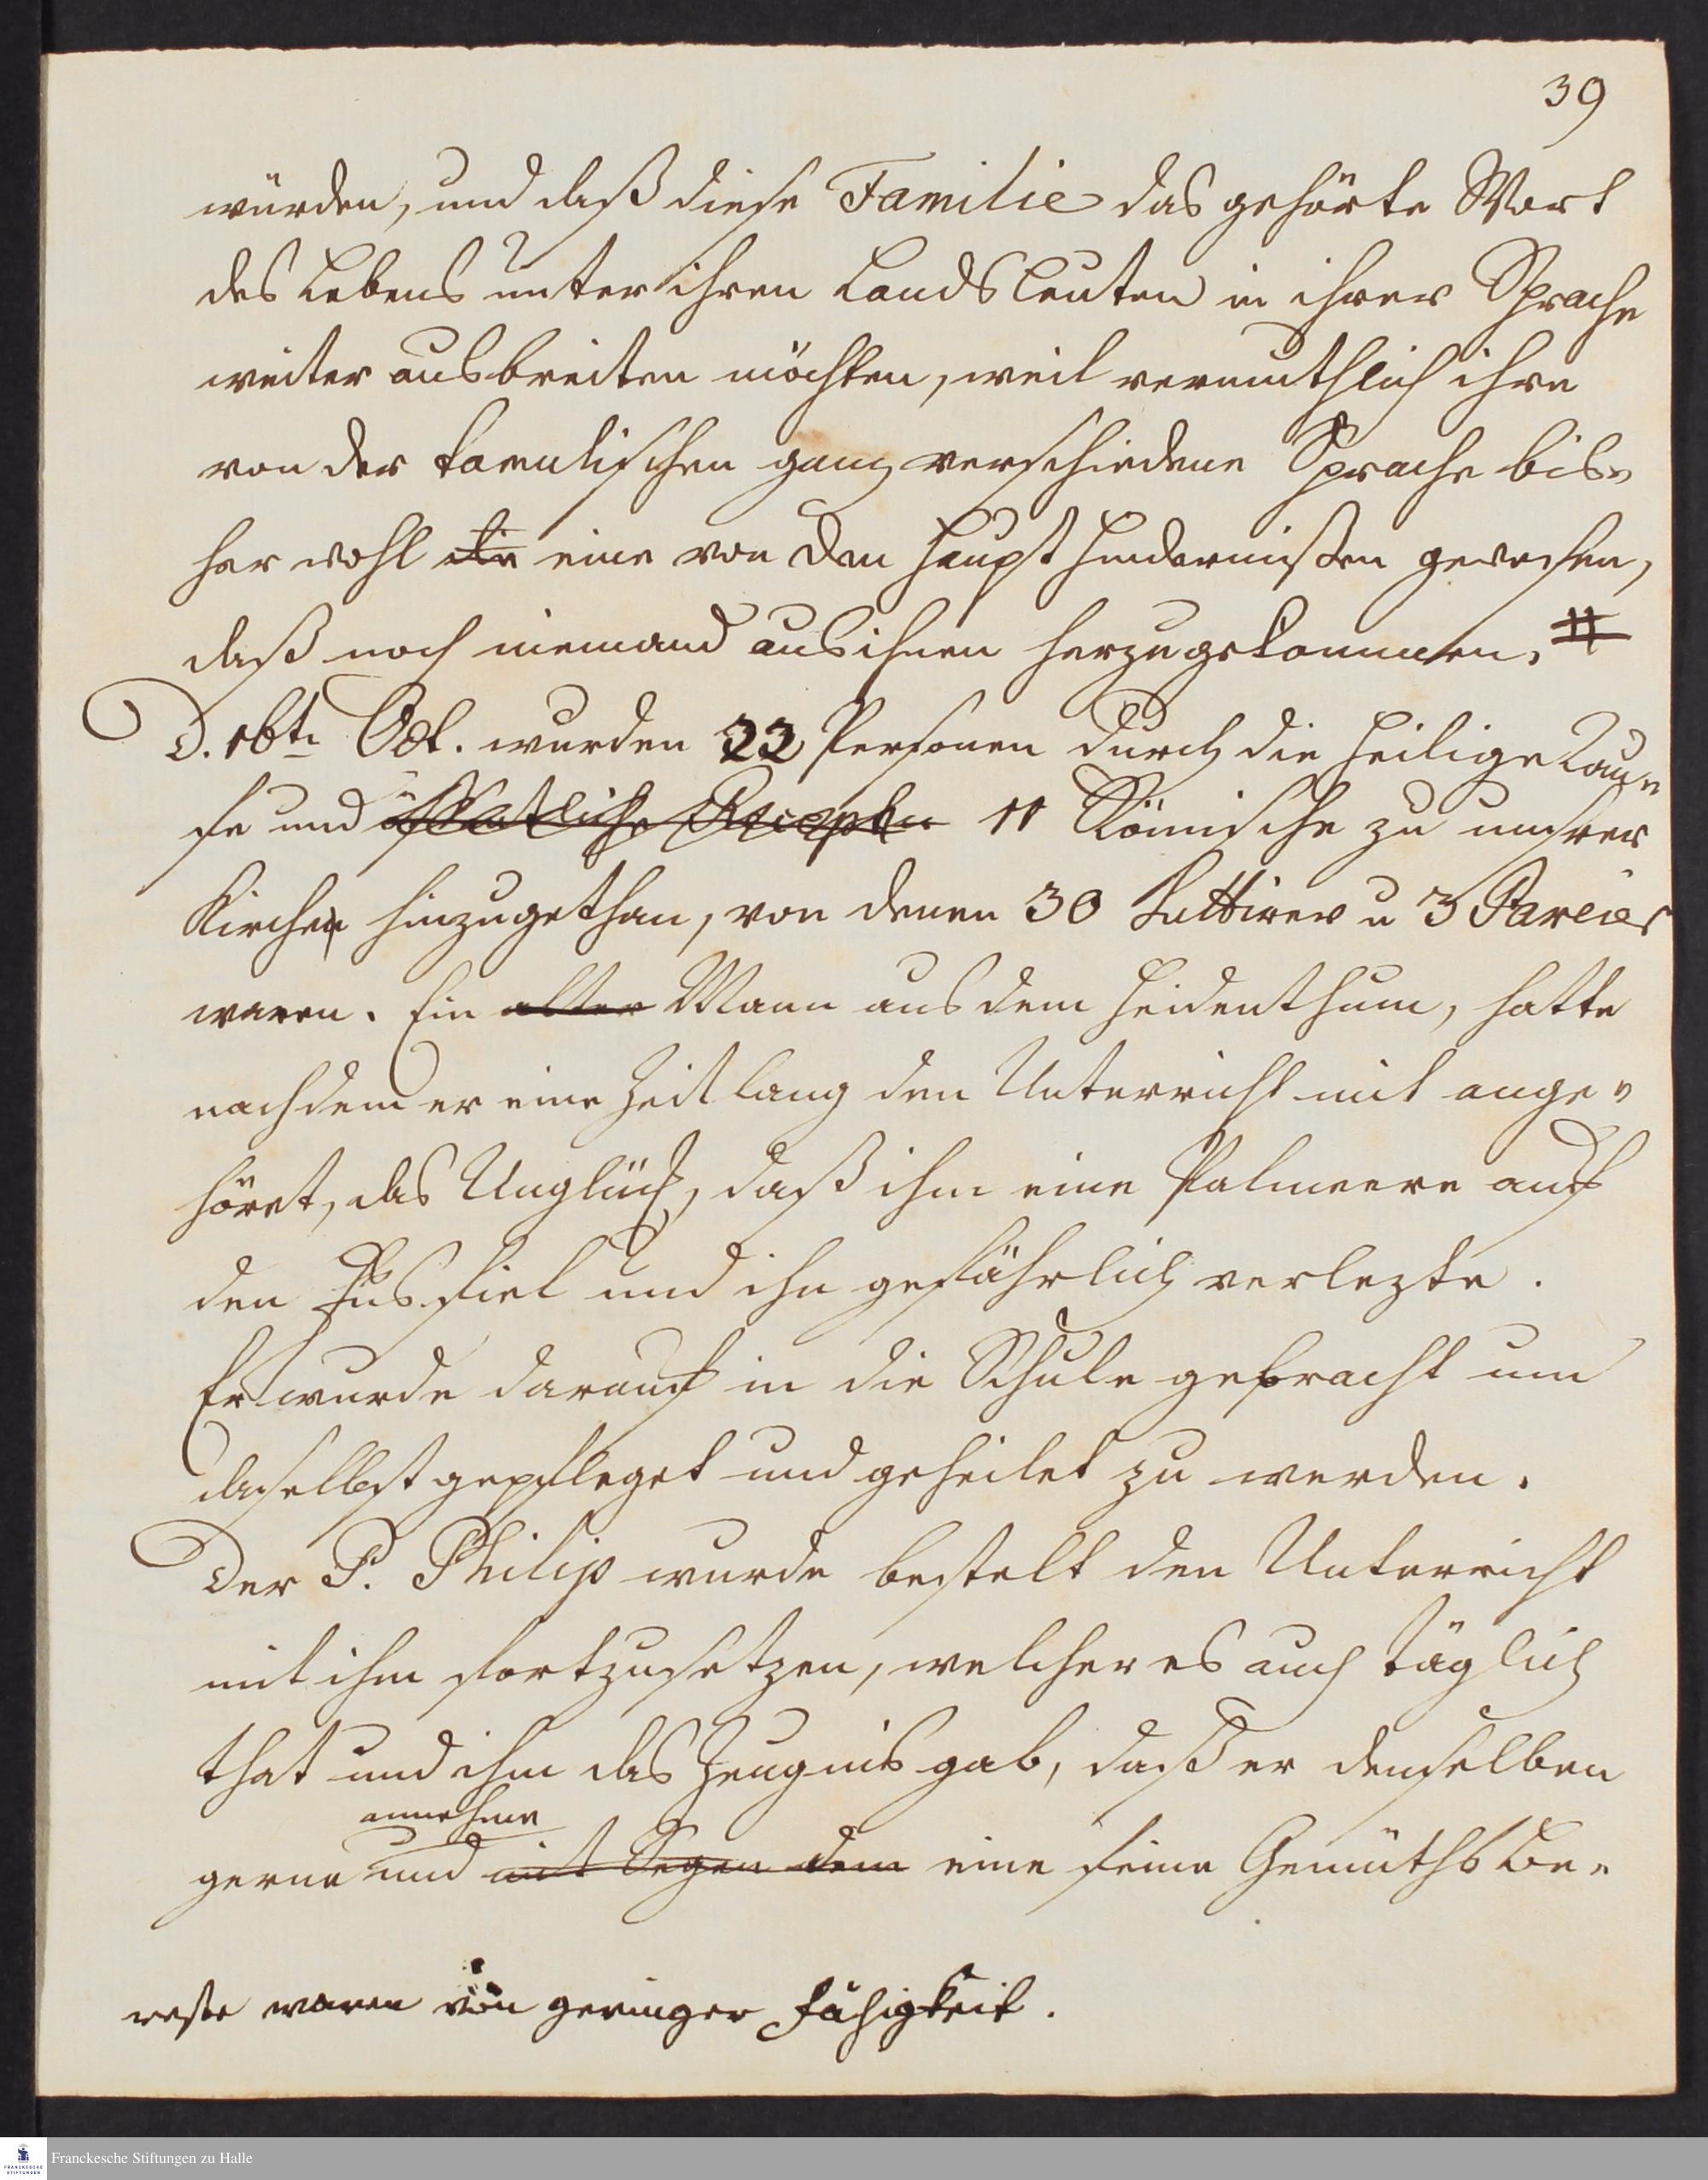 39
würden, und daß diese Familie das gehörte Wort
des Lebens unter ihren Landsleuten in ihrer Sprache
weiter ausbreiten möchten, weil vermuthlich ihre
von der tamulischen ganz verschiedene Sprache bis-
her wohl die eine von den Haupt Hindernißen gewesen,
daß noch niemand aus ihnen herzugekommen. #
D. 16tn Oct. wurden 22 Personen durch die Heilige Tau-
fe und öffentliche Reception 11 Römische zu unsrer
Kirche hinzugethan, von denen 30 Suttirer u 3 Pareier
waren. Ein alter Mann aus dem Heidenthum, hatte
nachdem er eine Zeitlang den Unterricht mit ange-
höret, das Unglück, daß ihm eine Palmeere auf
den Fus fiel und ihn gefährlich verlezte.
Er wurde darauf in die Schule gebracht um
daselbst gepfleget und geheilet zu werden.
Der P. Philip wurde bestelt den Unterricht
mit ihm fortzusetzen, welcher es auch täglich
that und ihm das Zeugnis gab, daß er denselben
annehme
gerne und mit Segen dem eine feine Gemüths Be-
reste waren von geringer Fähigkeit.
Franckesche Stiftungen zu Halle
FRANCKESCHE
STIFTUNGEN